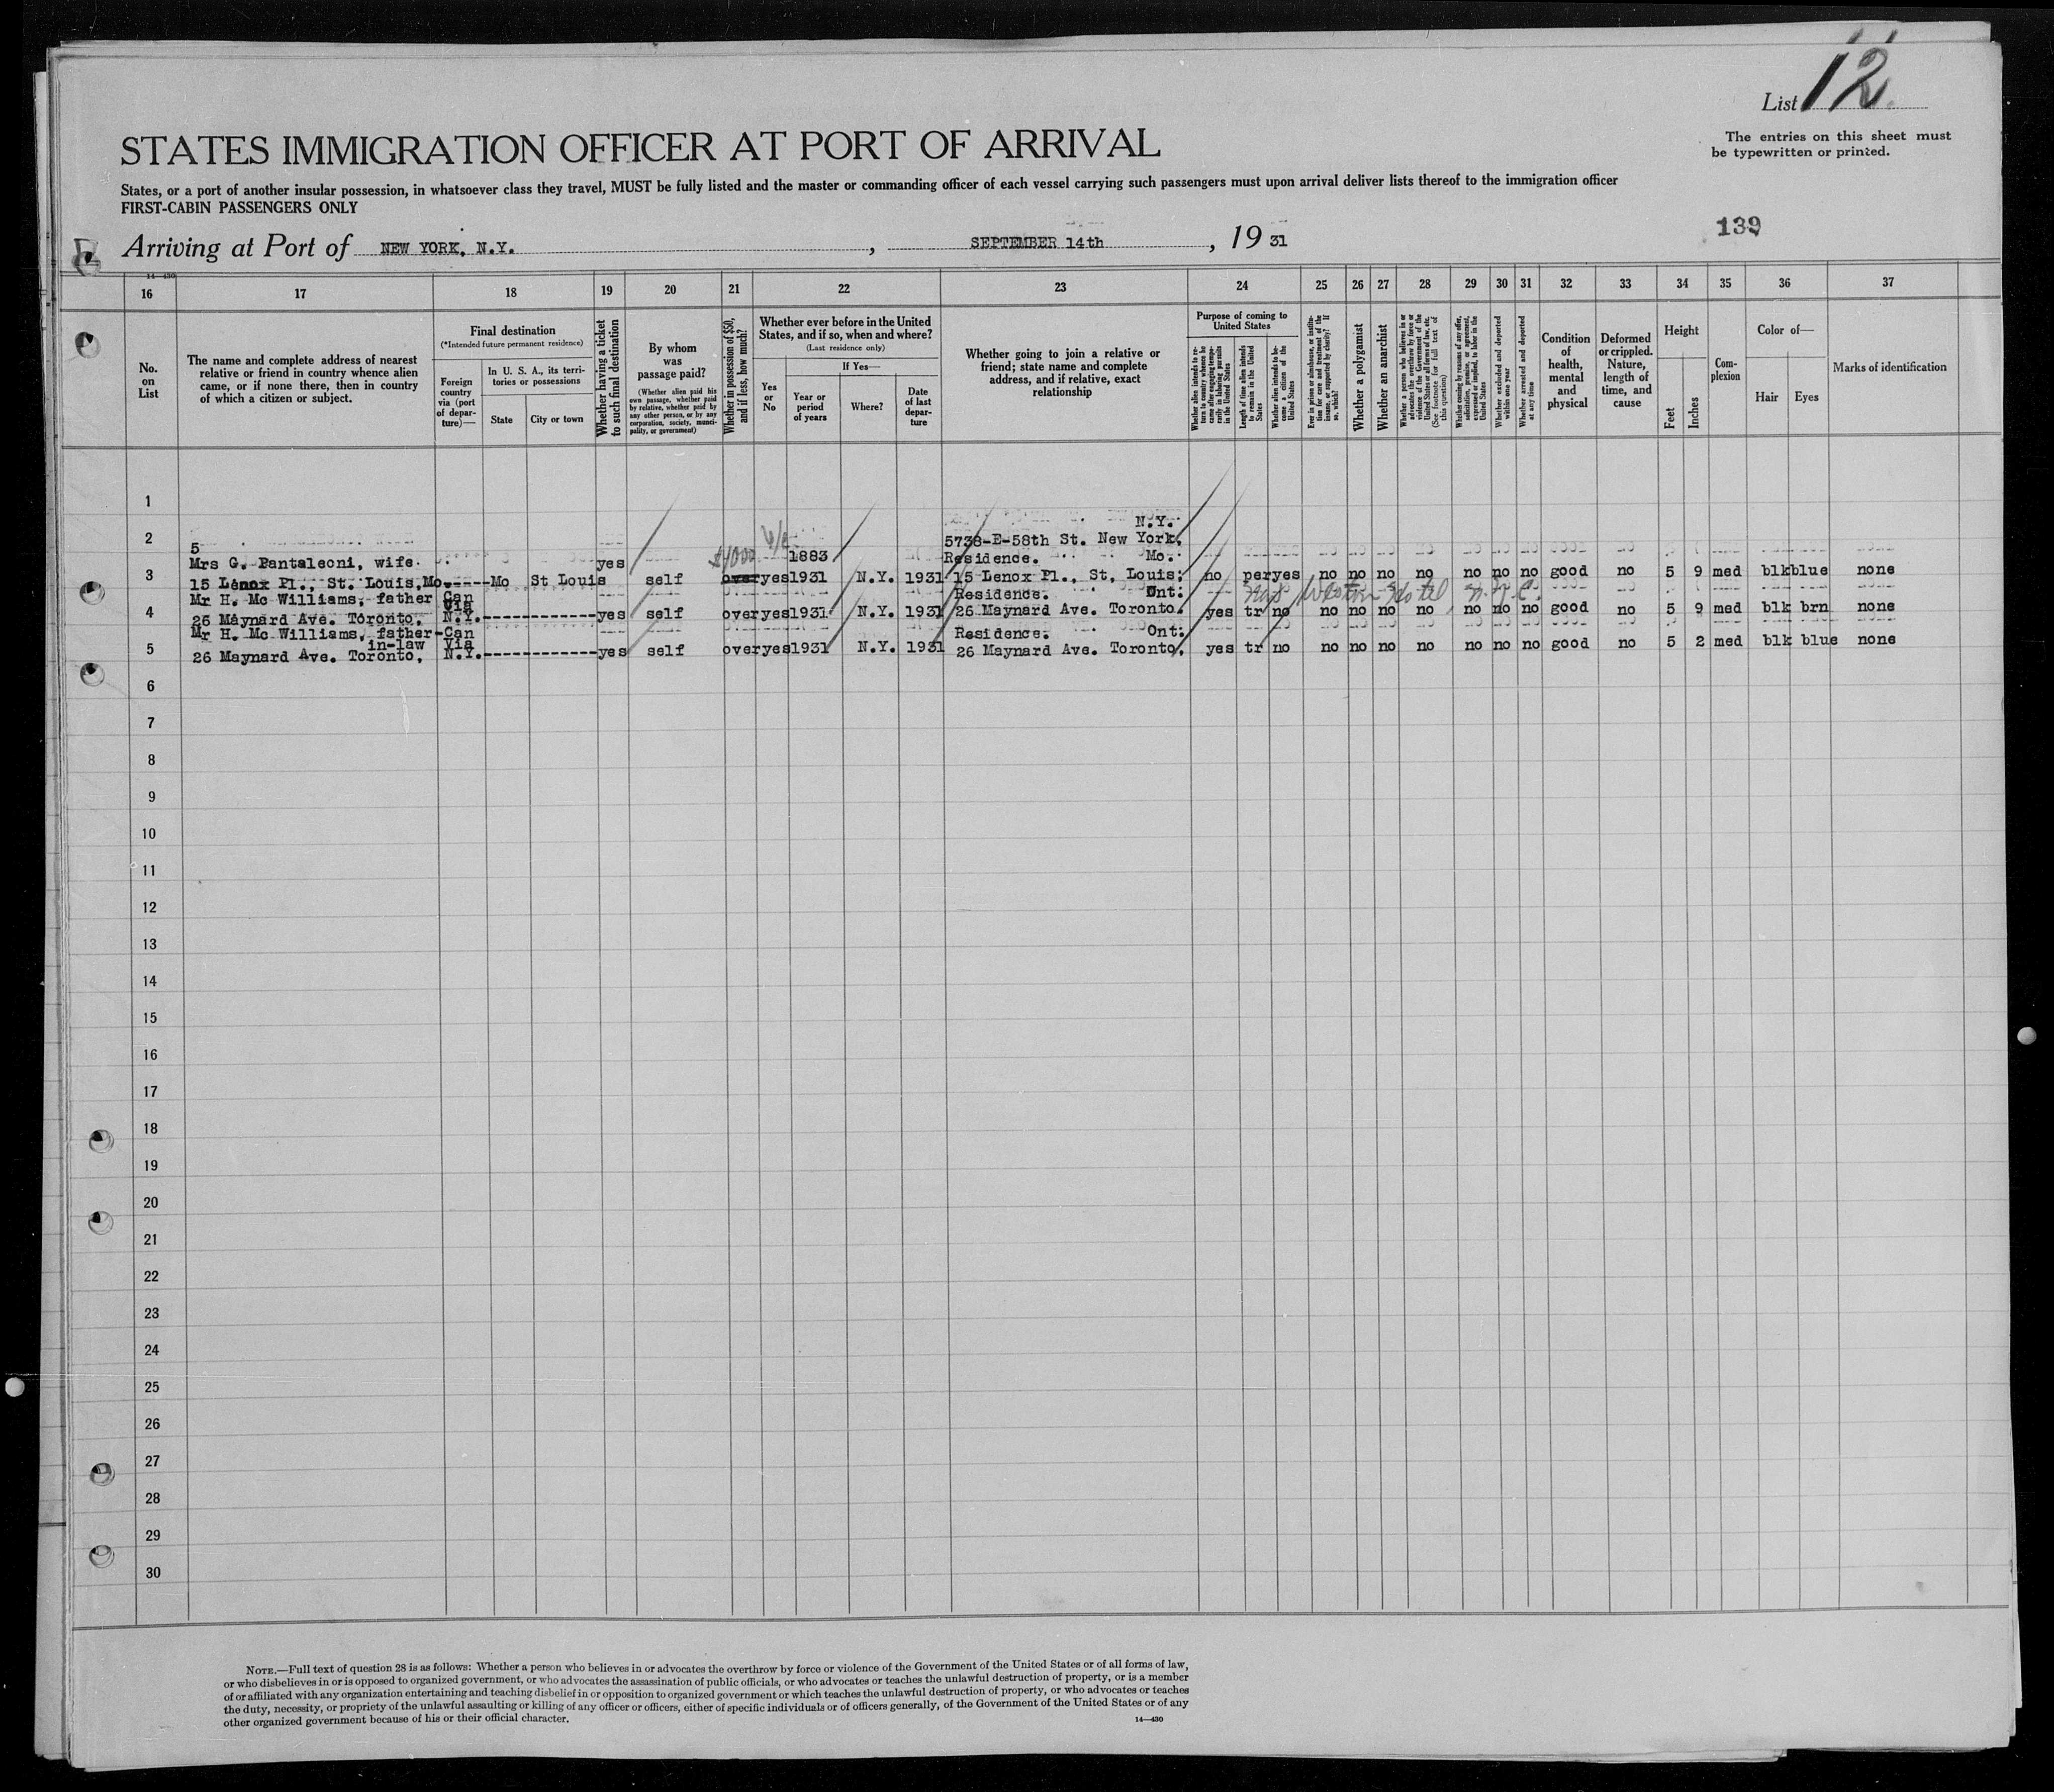 List 12
The entries on this sheet must
be typewritten or printed.
STATES IMMIGRATION OFFICER AT PORT OF ARRIVAL
States, or a port of another insular possession, in whatsoever class they travel, MUST be fully listed and the master or commanding officer of each vessel carrying such passengers must upon arrival deliver lists thereof to the immigration officer
FIRST-CABIN PASSENGERS ONLY
139
Arriving at Port of NEW YORK, N.Y. , SEPTEMBER 14th , 19 31
14—430
16 17 18 19 20 21 22 23 24 25 26 27 28 29 30 31 32 33 34 35 36 37
No. on List
The name and complete address of nearest relative or friend in country whence alien came, or if none there, then in country of which a citizen or subject.
Final destination
(*Intended future permanent residence)
Foreign country via (port of departure)—
In U. S. A., its territories or possessions
State
City or town
Whether having a ticket to such final destination
By whom was passage paid?
(Whether alien paid his own passage, whether paid by relative, whether paid by any other person, or by any corporation, society, municipality, or government)
Whether in possession of $50, and if less, how much?
Whether ever before in the United States, and if so, when and where?
(Last residence only)
Yes or No
If Yes—
Year or period of years
Where?
Date of last departure
Whether going to join a relative or friend; state name and complete address, and if relative, exact relationship
Purpose of coming to United States
Whether alien intends to return to country whence he came after engaging temporarily in laboring pursuits in the United States
Length of time alien intends to remain in the United States
Whether alien intends to become a citizen of the United States
Ever in prison or almshouse, or institution for care and treatment of the insane, or supported by charity? If so, which?
Whether a polygamist
Whether an anarchist
Whether a person who believes in or advocates the overthrow by force or violence of the Government of the United States or all forms of law, etc. (See footnote for full text of this question)
Whether coming by reason of any offer, solicitation, promise, or agreement, expressed or implied, to labor in the United States
Whether excluded and deported within one year
Whether arrested and deported at any time
Condition of health, mental and physical
Deformed or crippled. Nature, length of time, and cause
Height
Feet
Inches
Complexion
Color of—
Hair
Eyes
Marks of identification
1
N.Y.
2 5 5738-E-58th St. New York,
Mrs G. Pantaleoni, wife yes $4000 1883 Residence. Mo.
3 15 Lenox Pl., St. Louis,Mo.-----Mo St Louis self over yes 1931 N.Y. 1931 15 Lenox Pl., St, Louis. no per yes no no no no no no no good no 5 9 med blk blue none
Mr H. Mc Williams, father Can Via Residence. Ont. Hotel N.Y.C.
4 26 Maynard Ave. Toronto. N.Y.------------yes self over yes 1931 N.Y. 1931 26 Maynard Ave. Toronto. yes tr no no no no no no no no good no 5 9 med blk brn none
Mr H. Mc Williams, father- Can Residence. Ont.
in-law Via
5 26 Maynard Ave. Toronto, N.Y.------------yes self over yes 1931 N.Y. 1931 26 Maynard Ave. Toronto, yes tr no no no no no no no no good no 5 2 med blk blue none
6
7
8
9
10
11
12
13
14
15
16
17
18
19
20
21
22
23
24
25
26
27
28
29
30
NOTE.—Full text of question 28 is as follows: Whether a person who believes in or advocates the overthrow by force or violence of the Government of the United States or of all forms of law,
or who disbelieves in or is opposed to organized government, or who advocates the assassination of public officials, or who advocates or teaches the unlawful destruction of property, or is a member
of or affiliated with any organization entertaining and teaching disbelief in or opposition to organized government or which teaches the unlawful destruction of property, or who advocates or teaches
the duty, necessity, or propriety of the unlawful assaulting or killing of any officer or officers, either of specific individuals or of officers generally, of the Government of the United States or of any
other organized government because of his or their official character.
14—430